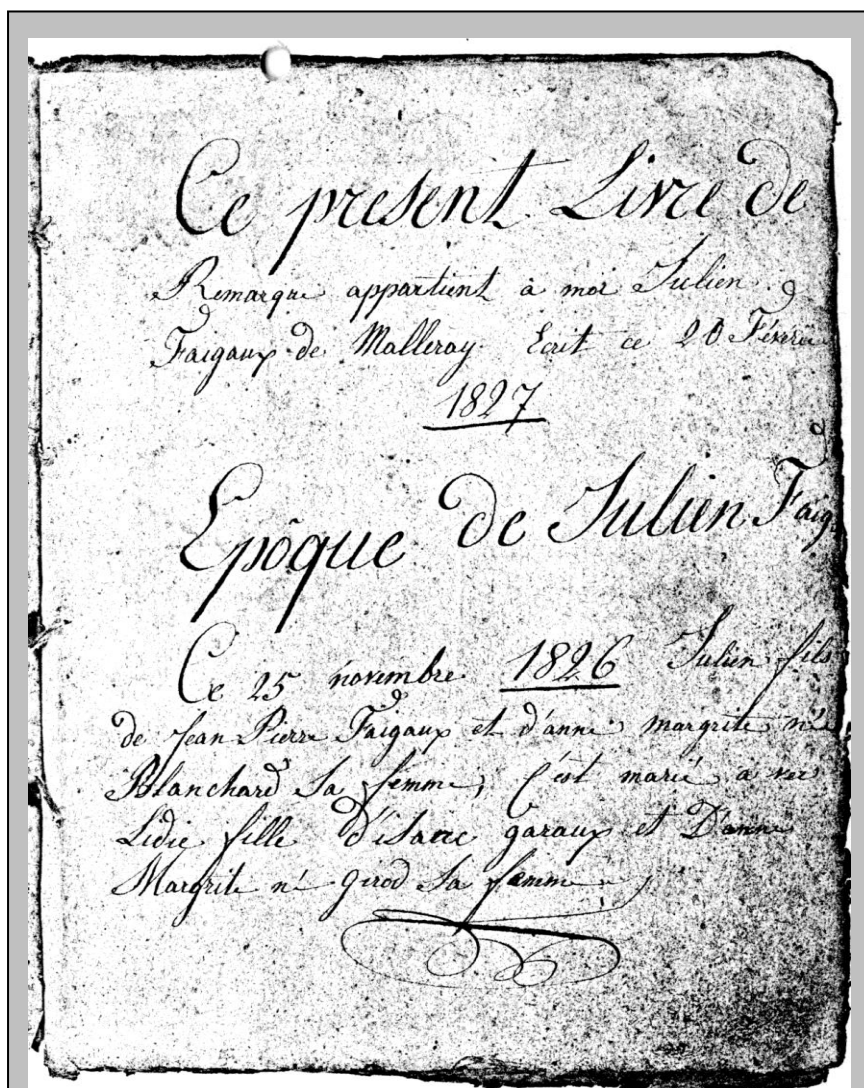 Ce present Livre de
Remarque appartient à moi Julien
Faigaux de Malleray. Ecrit ce 20 Févrie
1827
Epôque de Julien Faig
Ce 25 novembre 1826 Julien fils
de Jean Pierre Faigaux et d'anne margrite né
Blanchard Sa femme, C'est marié a vec
Lidie fille d'isaac garaux et D'anne
Margrite né girod Sa femme